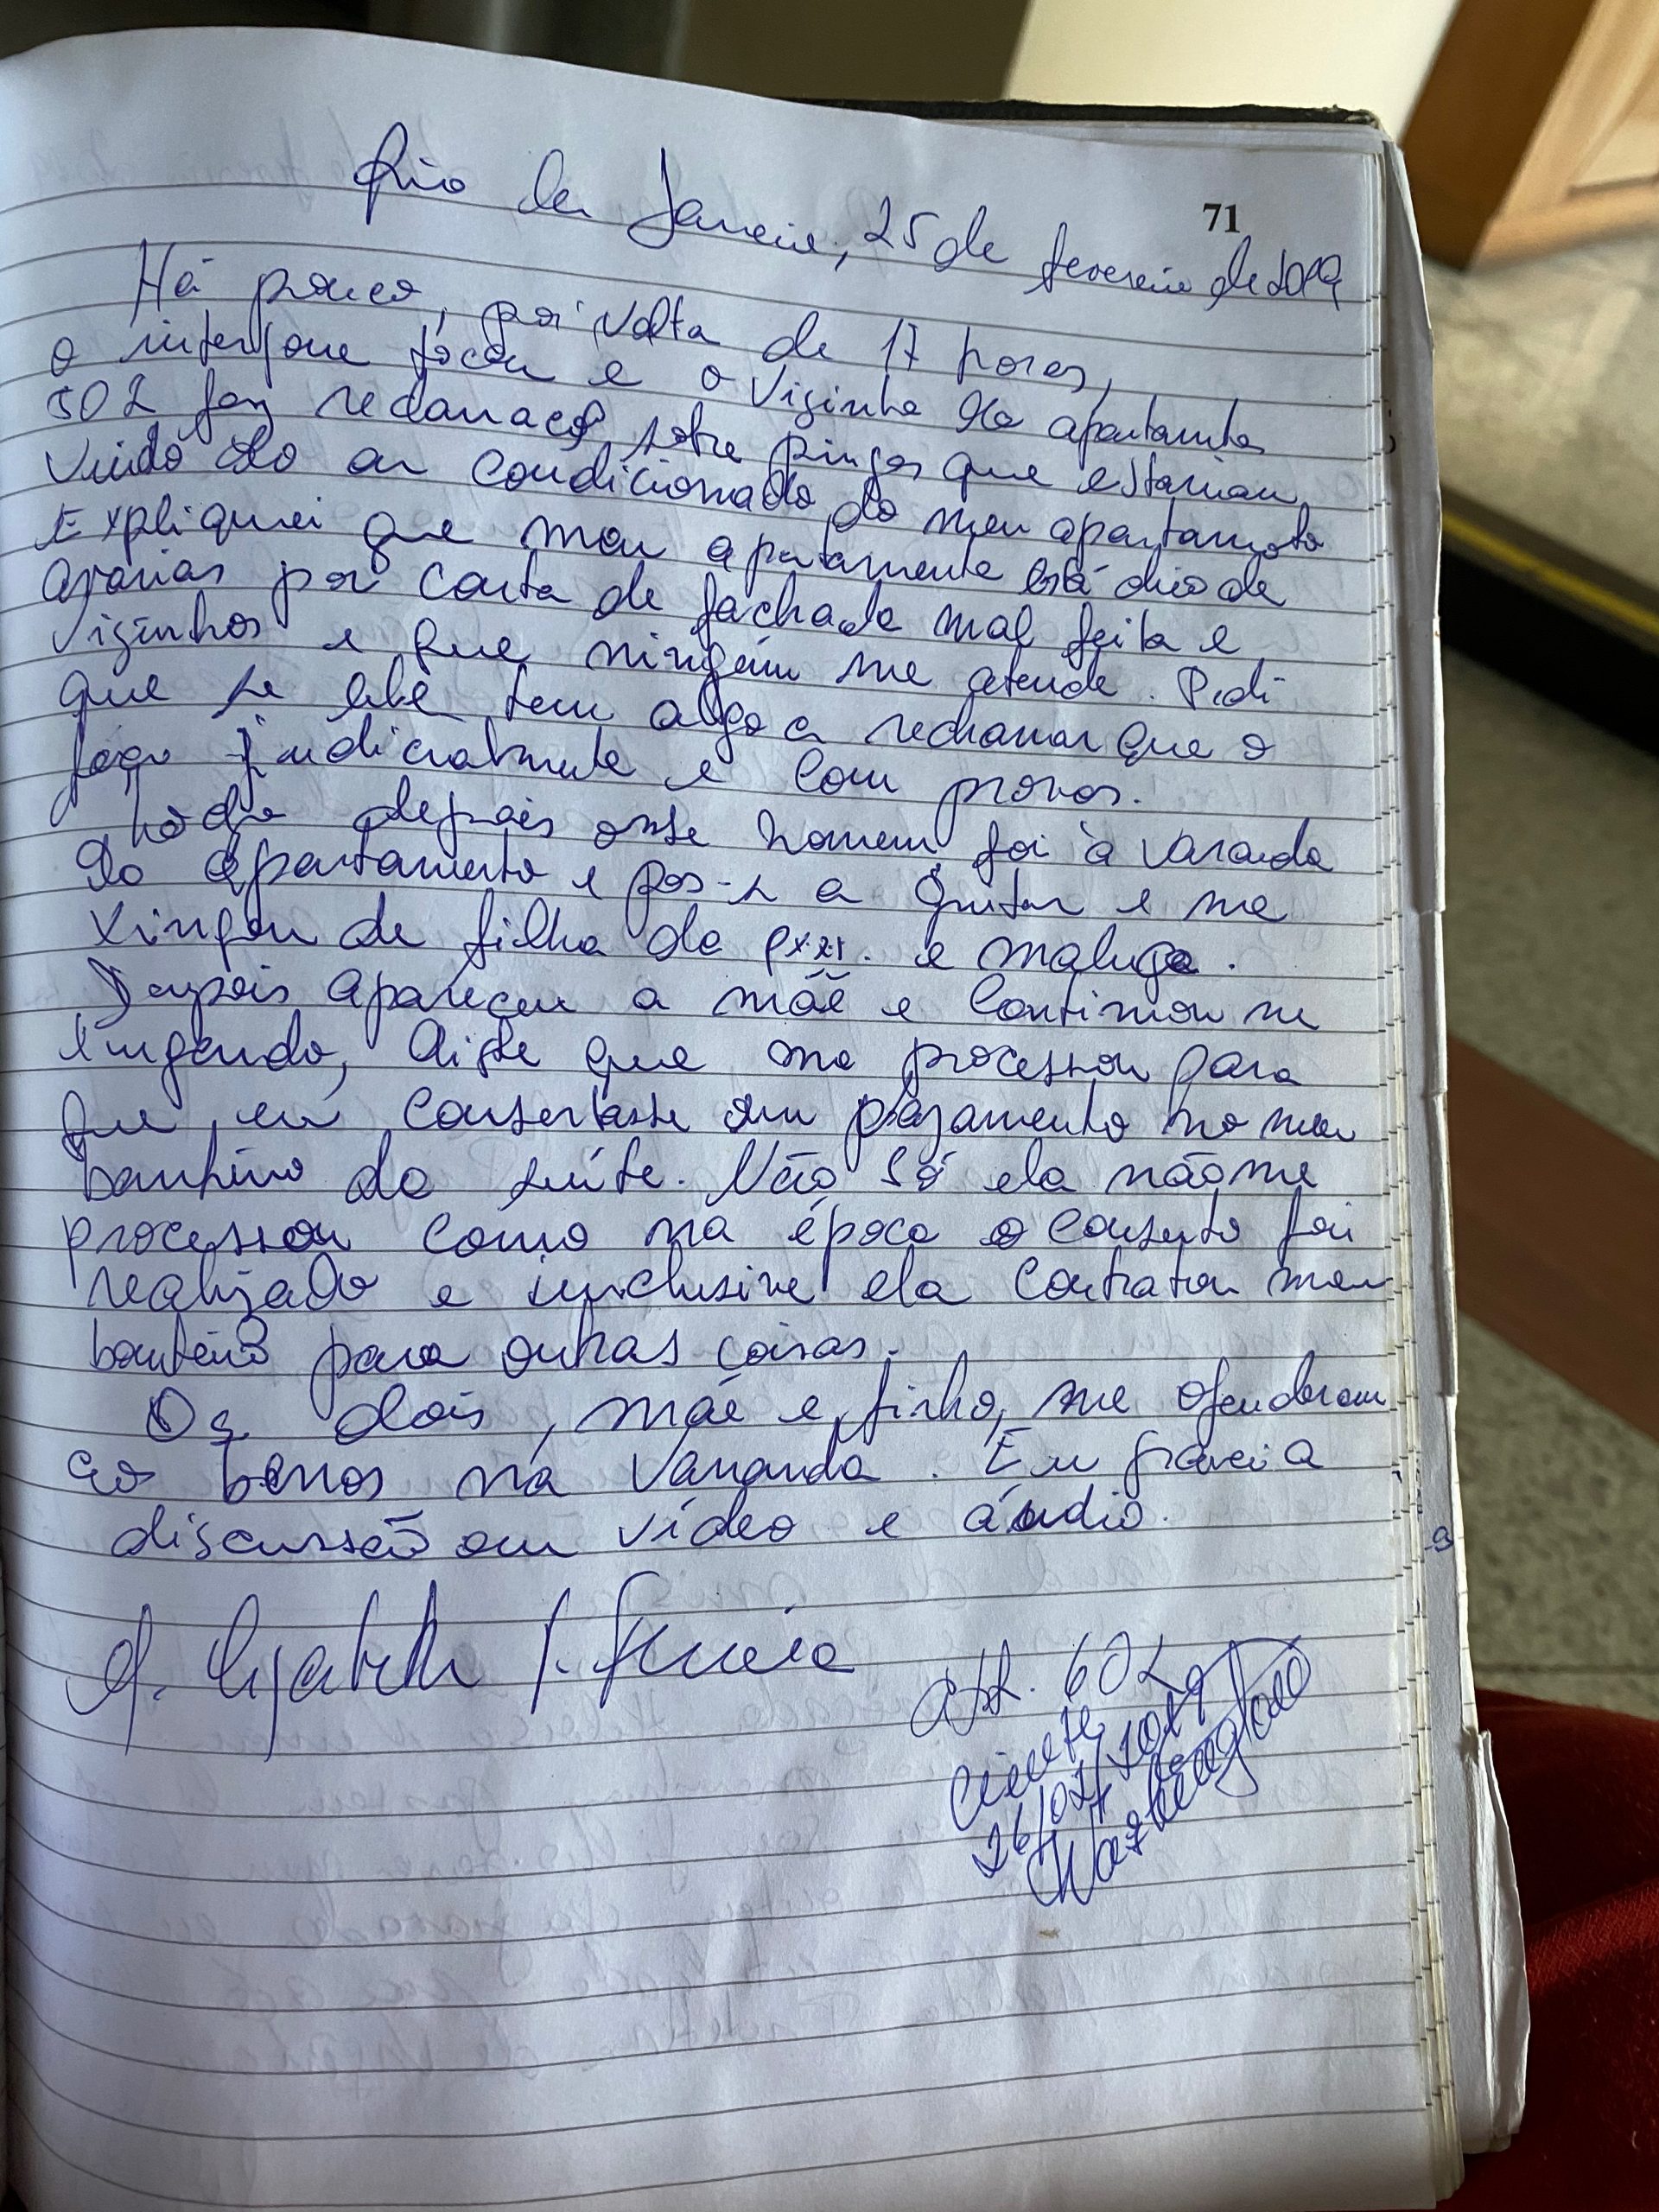 71
Rio de Janeiro, 25 de fevereiro de 2019
Há pouco, por volta de 17 horas,
o interfone tocou e o vizinho do apartamento
502 fez reclamação sobre pingos que estariam
vindo do ar condicionado do meu apartamento
Expliquei que meu apartamento está cheio de
avarias por conta de fachada mal feita e
vizinhos e que ninguém me atende. Pedi
que se ele tem algo a reclamar que o
faça judicialmente e com provas.
depois esse homem foi à varanda
do apartamento e pos-se a gritar e me
xingou de filha da pxxt. e maluca.
Depois apareceu a mãe e continuou me
xingando, disse que me processou para
que eu consertasse um vazamento no meu
banheiro da suíte. Não só ela não me
processou como na época o conserto foi
realizado e inclusive ela contratou meu
bombeiro para outras coisas.
Os dois, mãe e filho, me ofenderam
aos berros na varanda. Eu gravei a
discussão em vídeo e áudio.
apt. 602
Ciente
26/02/2019